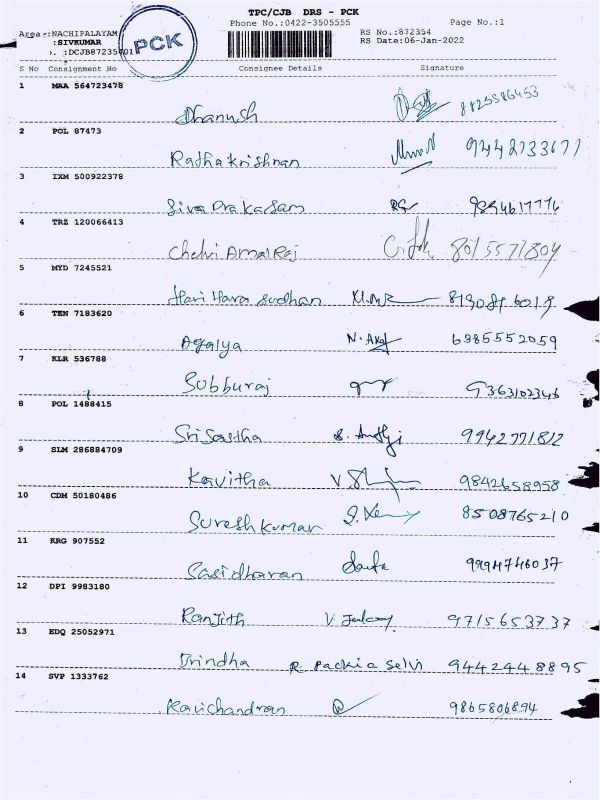 TPC/CJB DRS - PCK
Phone No.:0422-3505555 Page No.:1
Area :NACHIPALAYAM RS No.:872354
:SIVKUMAR RS Date:06-Jan-2022
PCK
S No Consignment No Consignee Details Signature
1 MAA 564723478
Dhanush 8825586453
2 POL 87473
Radhakrishnan 9442733677
3 IXM 500922378
Siva Prakasam 9894617776
4 TRZ 120066413
Chelvi Amal Raj
5 MYD 7245521
Hari Hara Sudhan
6 TEN 7183620
Agalya 6385552059
7 KLR 536788
Subburaj 9363102346
8 POL 1488415
Sri Sastha 9942771812
9 SLM 286884709
Kavitha 9842658958
10 CDM 50180486
Sureshkumar 8508765210
11 KRG 907552
Sasidharan 9994746037
12 DPI 9983180
Ranjith 9715653737
13 EDQ 25052971
Brindha R. Packia Selvi 9442448895
14 SVP 1333762
Ravichandran 9865806894